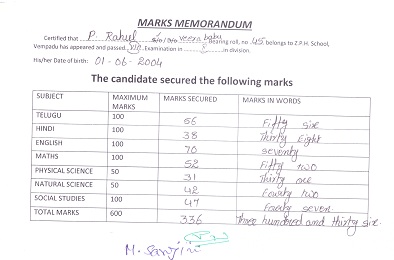 MARKS MEMORANDUM
Certified that P. Rahul S/o/D/o veera babu Bearing roll, no 45 belongs to Z.P.H. School,
Vempadu has appeared and passed Examination in in division.
His/her Date of birth: 01-06-2004
The candidate secured the following marks
SUBJECT MAXIMUM MARKS MARKS SECURED MARKS IN WORDS
TELUGU 100 56 Fifty six
HINDI 100 38 Thirty Eight
ENGLISH 100 70 seventy
MATHS 100 52 Fifty two
PHYSICAL SCIENCE 50 31 Thirty one
NATURAL SCIENCE 50 42 Fourty two
SOCIAL STUDIES 100 47 Fourty seven
TOTAL MARKS 600 336 Three hundred and thirty six